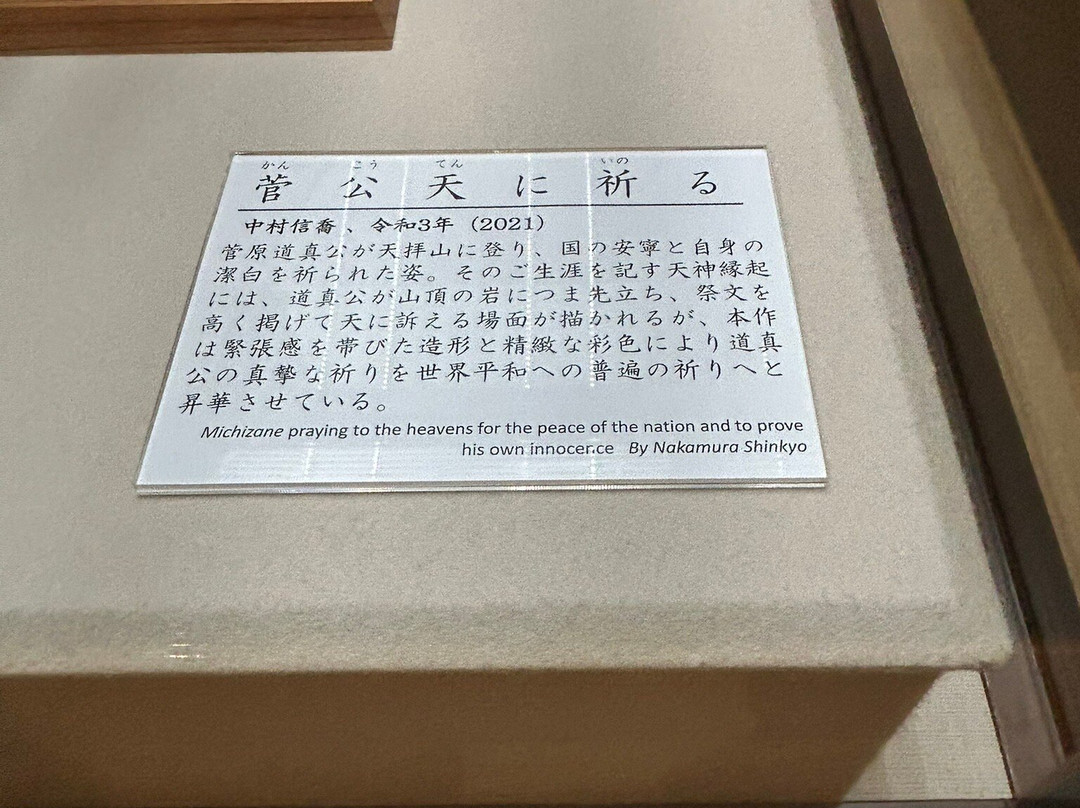 かん こう てん いの
菅公天に祈る
中村信喬、令和3年（2021）
菅原道真公が天拝山に登り、国の安寧と自身の
潔白を祈られた姿。そのご生涯を記す天神縁起
には、道真公が山頂の岩につま先立ち、祭文を
高く掲げて天に訴える場面が描かれるが、本作
は緊張感を帯びた造形と精緻な彩色により道真
公の真摯な祈りを世界平和への普遍の祈りへと
昇華させている。
Michizane praying to the heavens for the peace of the nation and to prove
his own innocence By Nakamura Shinkyo